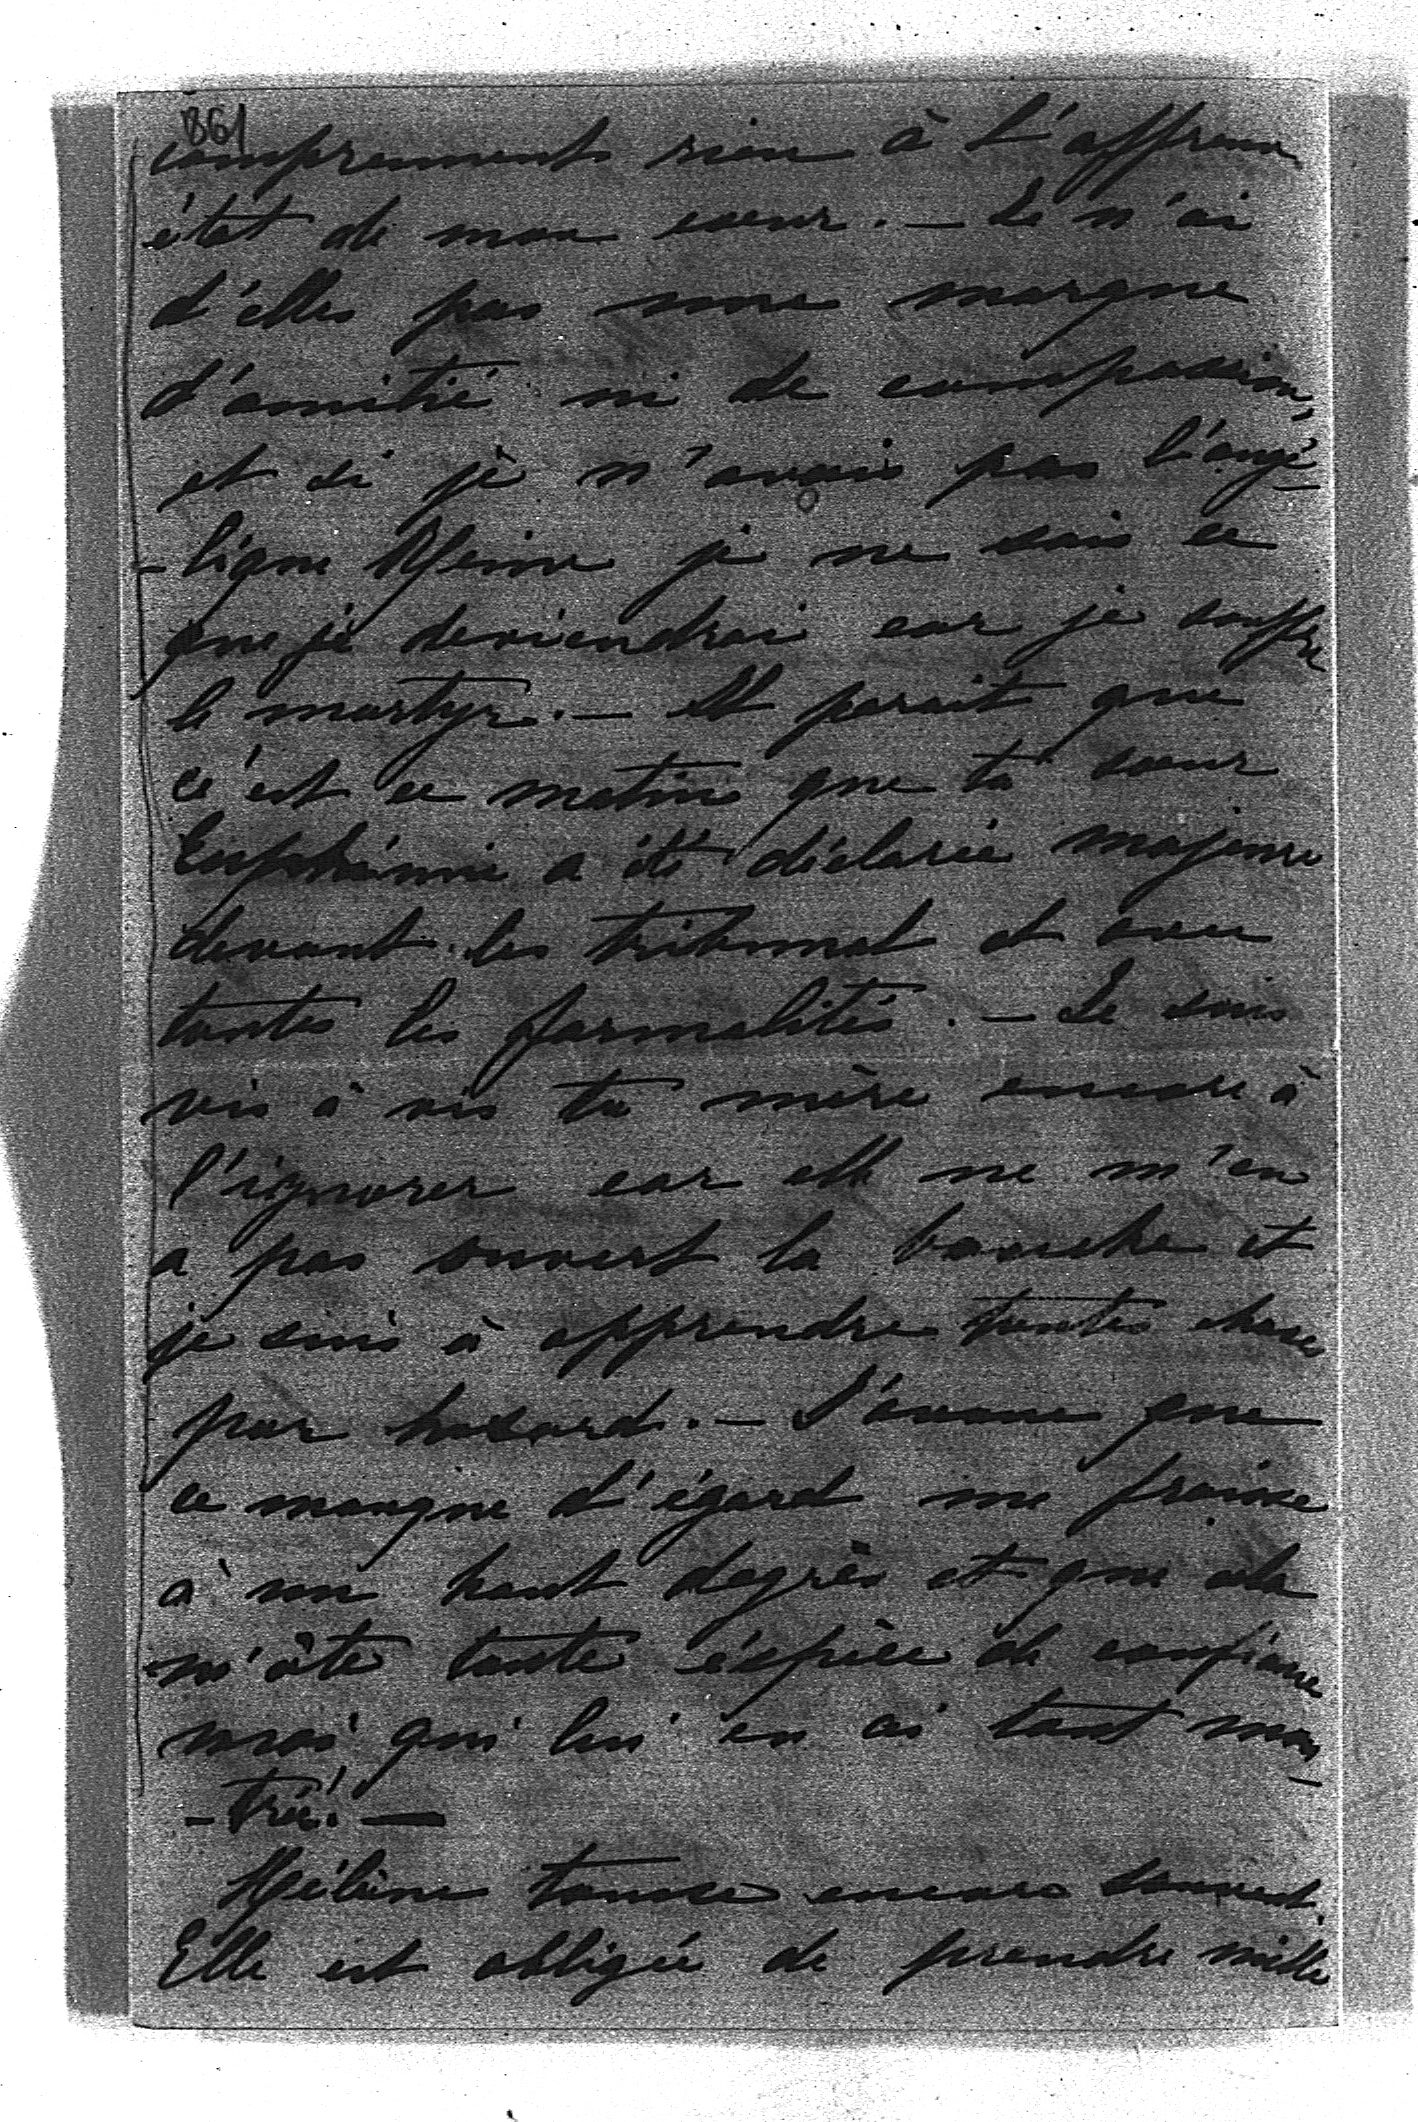 861
comprennent rien à l'affreux
état de mon coeur. — Je n'ai
d'elles pas une marque
d'amitié ni de compassion,
et si je n'avais pas l'angé-
-lique Reine je ne sais ce
que je deviendrai car je souffre
le martyr. — Il parait que
c'est ce matin que ta soeur
Euphémie a été déclarée majeure
devant les tribunal et avec
toutes les formalités. — Je suis
vis à vis ta mère encore à
l'ignorer car elle ne m'en
a pas ouvert la bouche et
je suis à apprendre toutes choses
par hasard. — J'avoue que
ce manque d'égard me froisse
à un haut degrès et que cela
m'ôte toute éspèce de confiance
moi qui lui en ai tant mon-
-tré! —
Hélène tousse encore souvent.
Elle est obligée de prendre mille